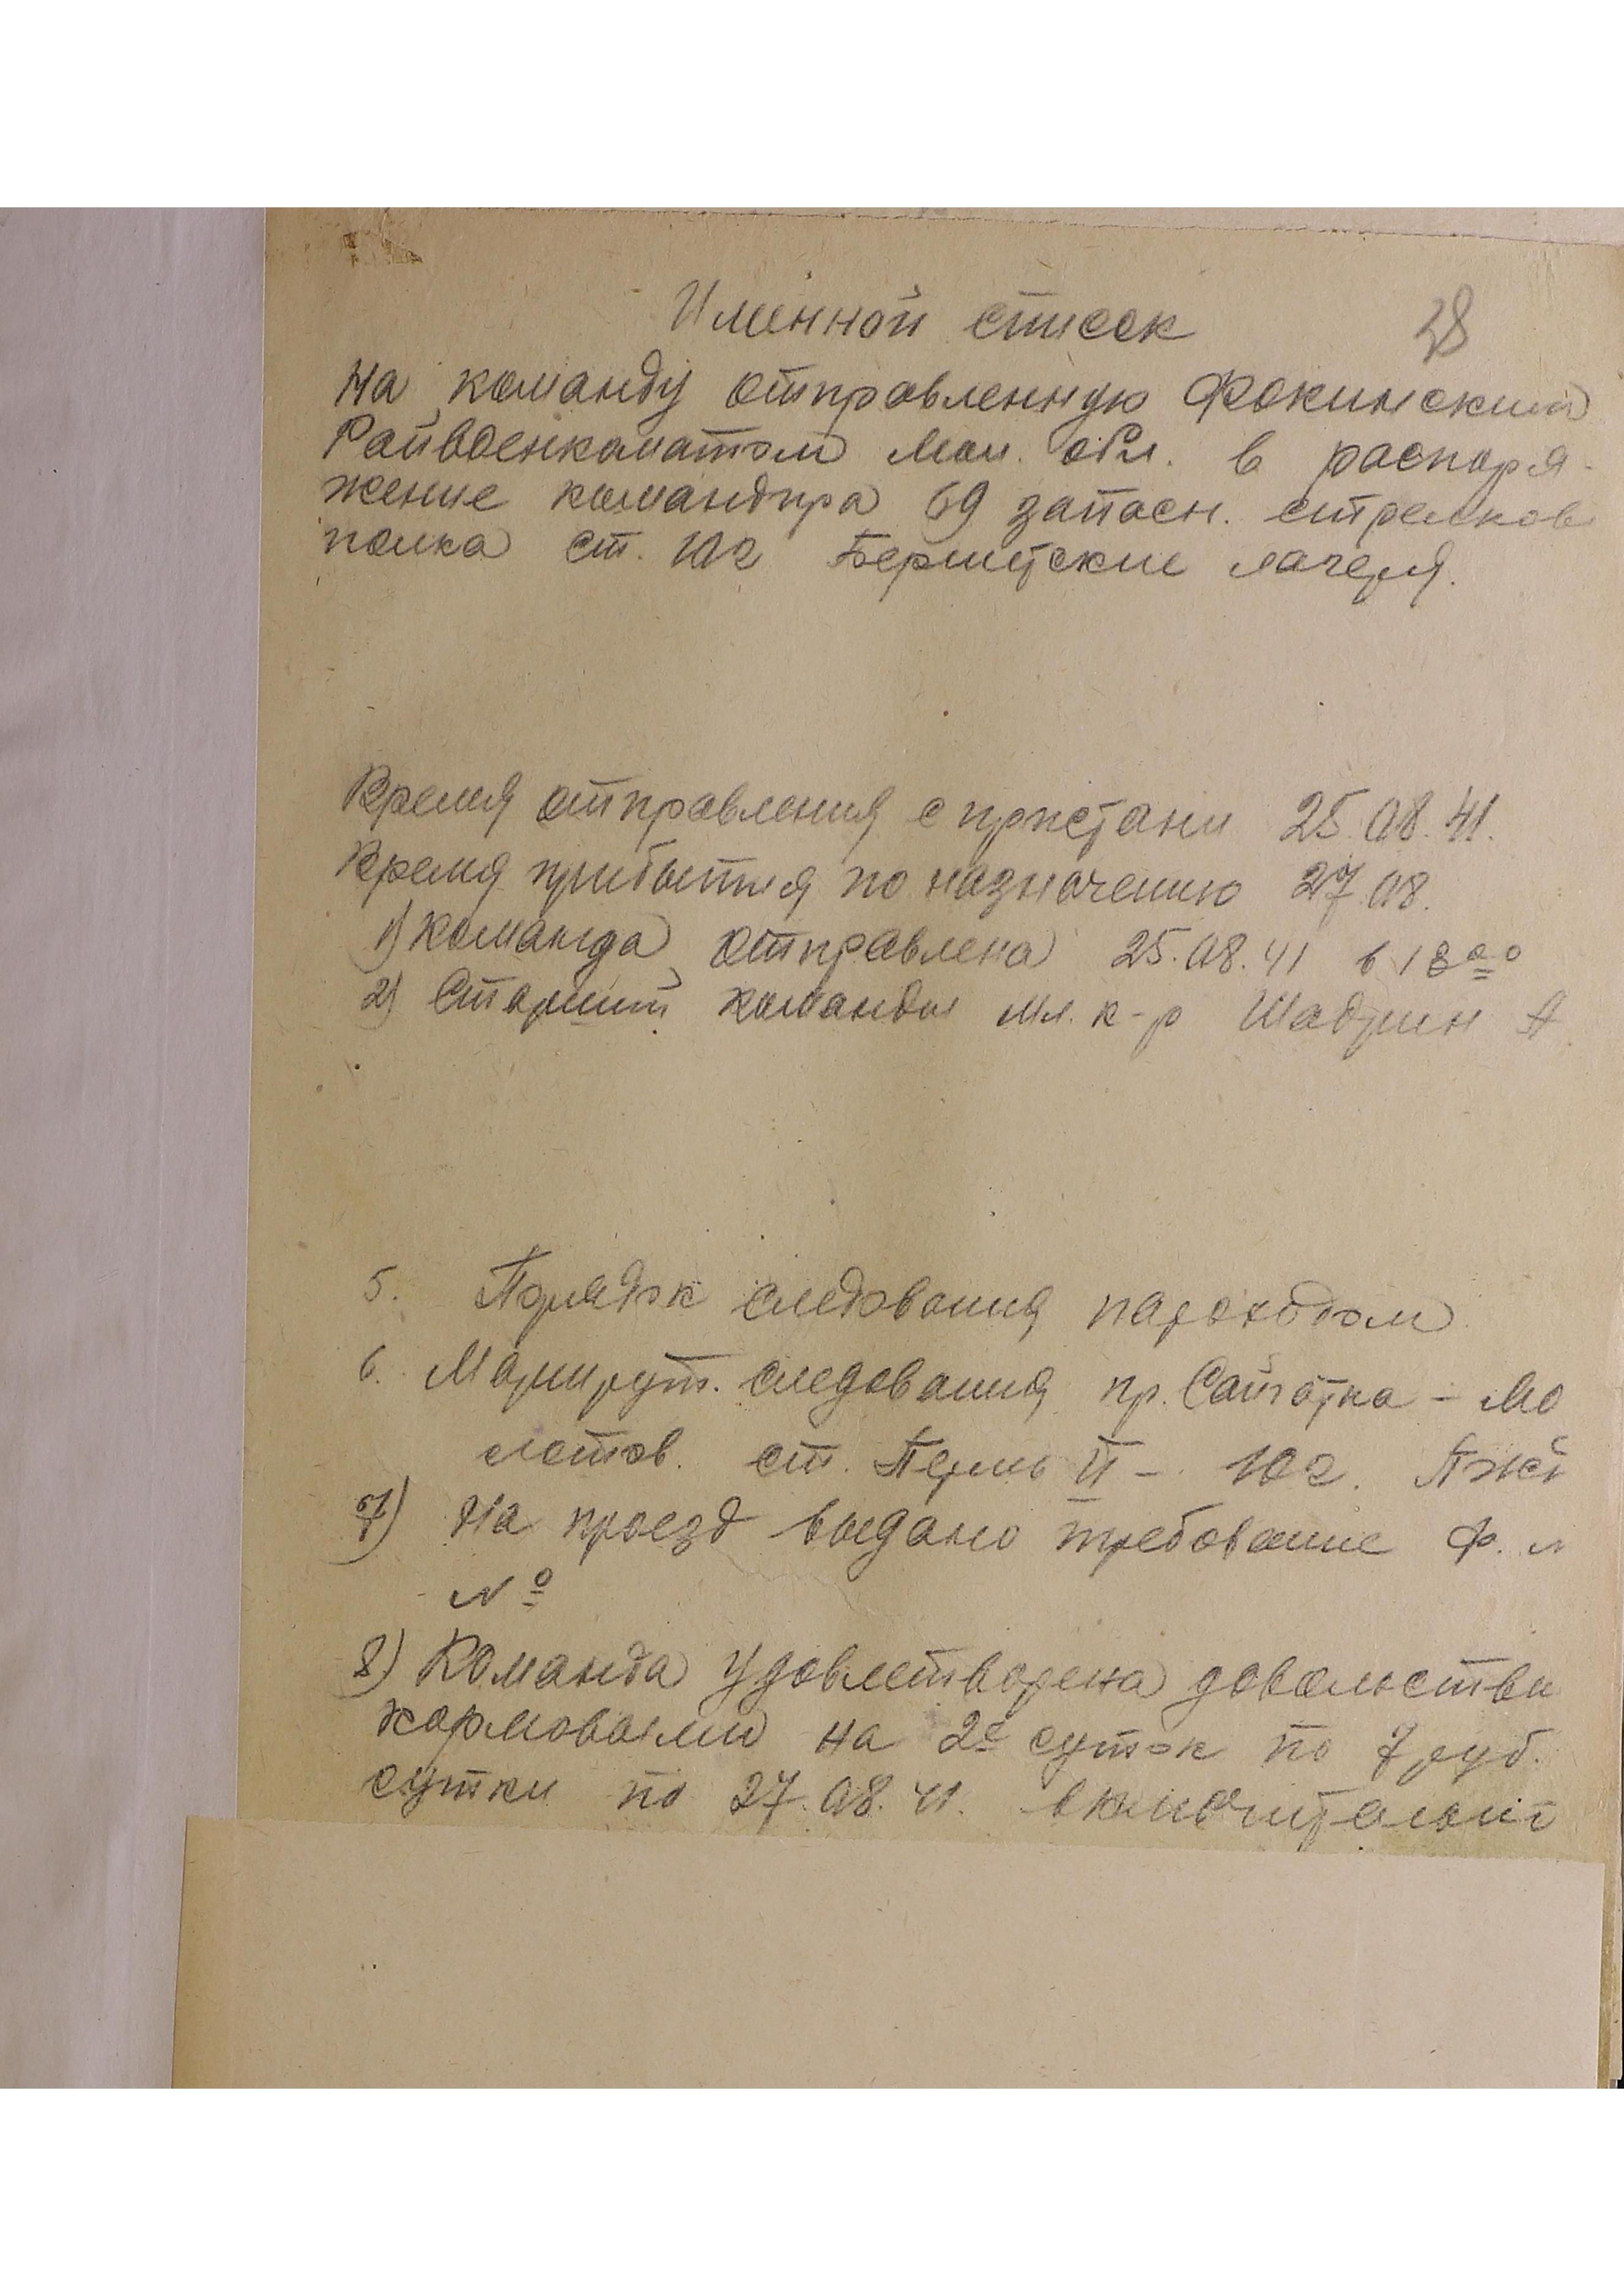 Именной список
28
на команду отправленную Фокинским
Райвоенкоматом Мол. обл. в распоря-
жение командира 69 запасн. стрелков
полка ст. Юг Бершетские лагеря.
Время отправления с пристани 25.08.41.
Время прибытия по назначению 27.08.
1) Команда отправлена 25.08.41 в 18⁰⁰
2) Старший команды мл. к-р Шадрин А
5. Порядок следования пароходом
6. Маршрут. следования пр. Сайгатка - Мо
лотов. ст. Пермь II - Юг. Пж
7) На проезд выдано требование ф.
№
8) Команда удовлетворена довольстви
кормовыми на 2е суток по 7 руб.
сутки по 27.08.41. включительно